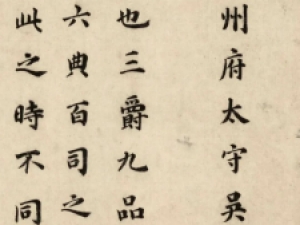 州府太守吳
也三爵九品
六典百司之
此之時不同